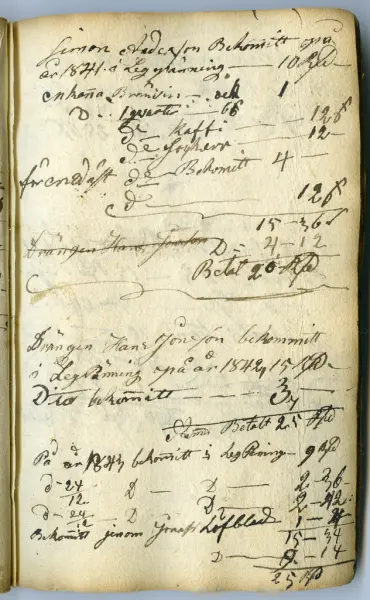 Simon Anderson Bekommitt på
år 1841 i Legpänning — 10 RD
en kanna Bränvin och 1
D: 1 qvarter 6ß
de Kaffi — 12ß
de Socker — 12
de Bekomitt 4 —
d — 12ß
15 — 36ß
Drängen Hans Jönsson D = 4 — 12
Betalt 20 Rd
Drängen Hans Jönsson bekommitt
i Legpänning på år 1842, 15 RD
Dito bekomitt — 3
Betalt 25 Rd
På år 1843 bekomitt i Legpening 9 Rd
d 24/12 D — D 2 — 36
d 24/12 D D 2 — 42
Bekomitt jenom Löfblad 1 — 4
15 — 34
D — 9 — 14
25 Rd